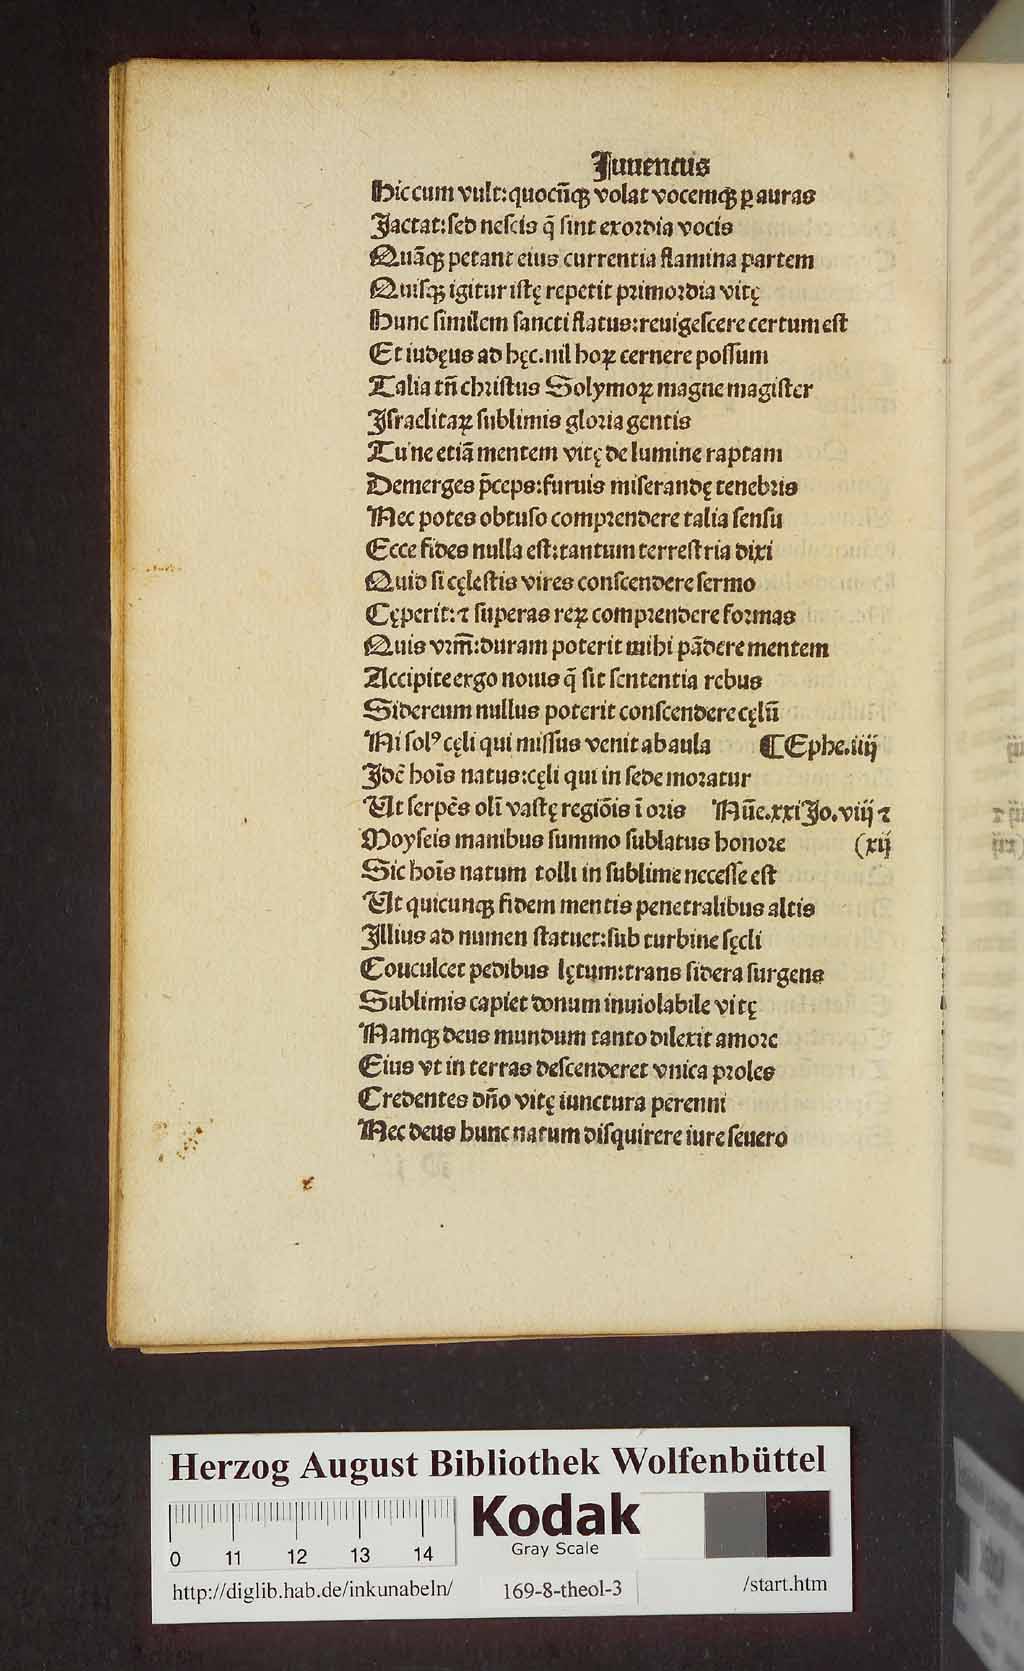 Juuencus
Hic cum vult: quocūqꝫ volat vocemqꝫ ꝑ auras
Jactat: sed nescis q̄ sint exordia vocis
Quāqꝫ petant eius currentia flamina partem
Quisqꝫ igitur istę repetit primordia vitę
Hunc similem sancti flatus: reuigescere certum est
Et iudęus ad hęc. nil hoꝝ cernere possum
Talia tn̄ christus Solymoꝝ magne magister
Jsraelitaꝝ sublimis gloria gentis
Tu ne etiā mentem vitę de lumine raptam
Demerges p̄ceps: furuis miserandę tenebris
Nec potes obtuso comprendere talia sensu
Ecce fides nulla est: tantum terrestria dixi
Quid si cęlestis vires conscendere sermo
Cęperit: ⁊ superas reꝝ comprendere formas
Quis vrm̄: duram poterit mihi pādere mentem
Accipite ergo nouis q̄ sit sententia rebus
Sidereum nullus poterit conscendere cęlū
Ni solꝰ cęli qui missus venit ab aula ⸿Ephe.iiij
Jdē hoīs natus: cęli qui in sede moratur
Ut serpēs olī vastę regiōis ī oris Nūe.xxi Jo.viij ⁊
Moyseis manibus summo sublatus honore (xij
Sic hoīs natum tolli in sublime necesse est
Ut quicunqꝫ fidem mentis penetralibus altis
Jllius ad numen statuet: sub turbine sęcli
Couculcet pedibus lętum: trans sidera surgens
Sublimis capiet donum inuiolabile vitę
Namqꝫ deus mundum tanto dilexit amore
Eius vt in terras descenderet vnica proles
Credentes dn̄o vitę iunctura perenni
Nec deus hunc natum disquirere iure seuero
Herzog August Bibliothek Wolfenbüttel
0 11 12 13 14
Kodak
Gray Scale
http://diglib.hab.de/inkunabeln/ 169-8-theol-3 /start.htm